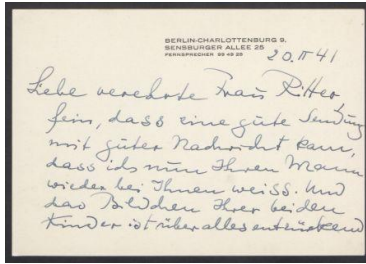 BERLIN-CHARLOTTENBURG 9,
SENSBURGER ALLEE 25
FERNSPRECHER 99 49 25
20.IV 41
Liebe verehrte Frau Ritter,
fein, dass eine gute Sendung
mit guter Nachricht kam,
dass ich nun Ihren Mann
wieder bei Ihnen weiss. Und
das Bildchen Ihrer beiden
Kinder ist über alles entzückend